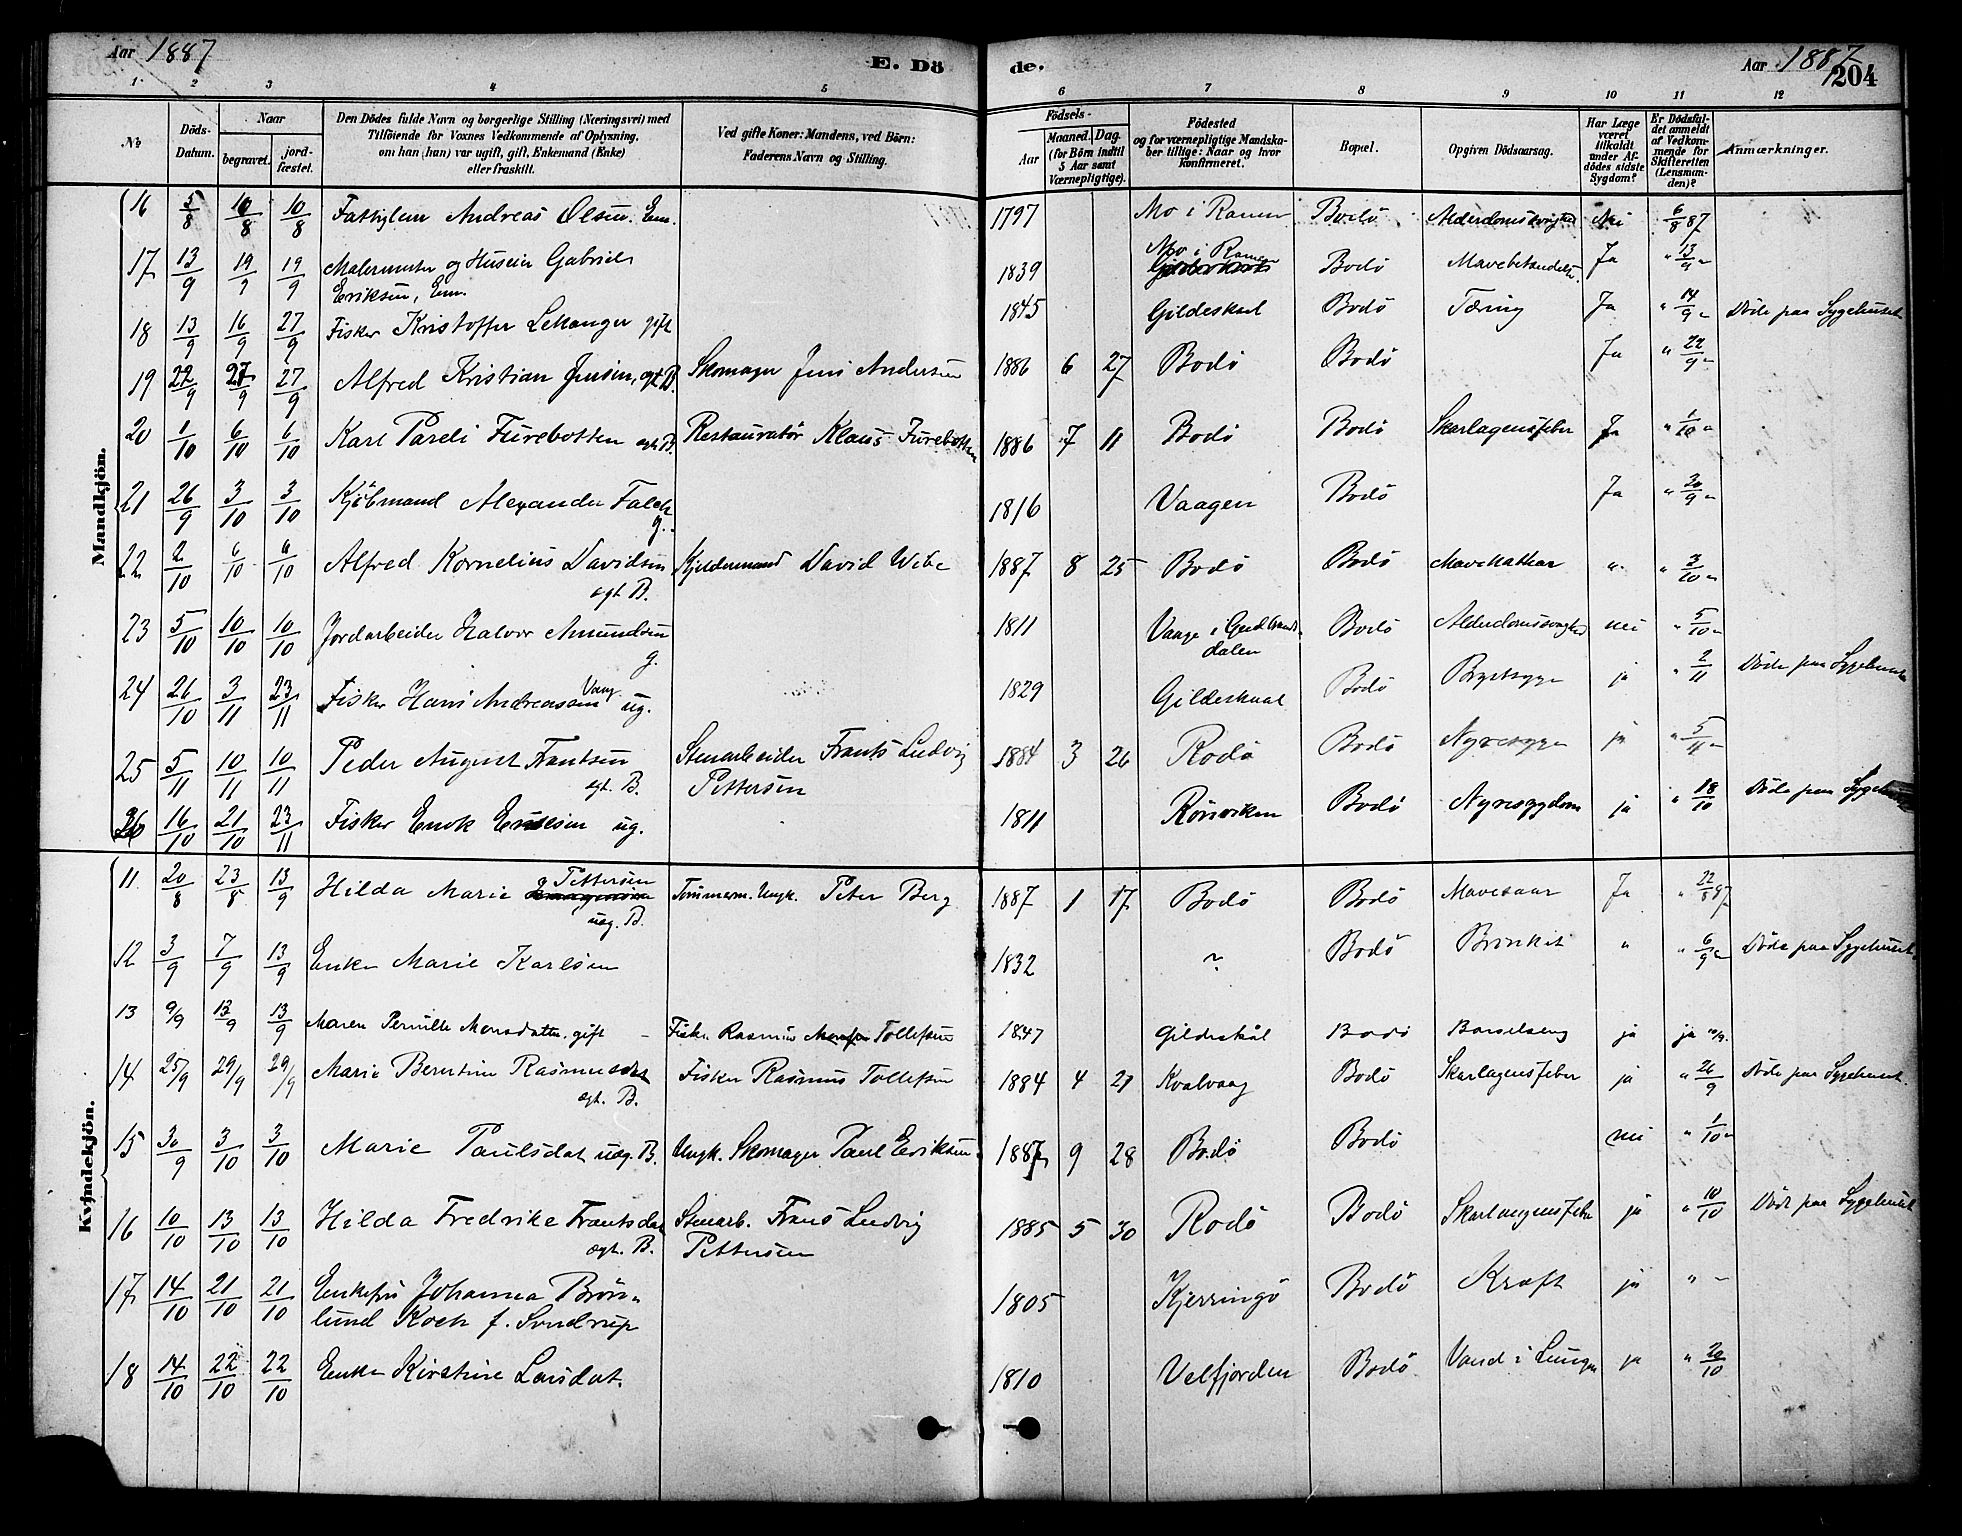 Aar 1887
E. Dö
de.
Aar 1887.
204
1 2 3 4 5 6 7 8 9 10 11 12
No
Döds-Datum.
Naar
begravet.
jordfæstet.
Den Dödes fulde Navn og borgerlige Stilling (Næringsvei) med
Tilföiende for Voxnes Vedkommende af Oplysning,
om han (hun) var ugift, gift, Enkemand (Enke)
eller fraskilt.
Ved gifte Koner: Mandens, ved Börn:
Faderens Navn og Stilling.
Födsels-
Aar
Maaned. Dag.
(for Börn indtil
5 Aar samt
Værnepligtige).
Födested
og for værnepligtige Mandskaber tillige: Naar og hvor
konfirmeret.
Bopæl.
Opgiven Dödsaarsag.
Har Læge været tilkaldt under Afdödes sidste Sygdom?
Er Dödsfaldet anmeldt af Vedkommende for Skifteretten (Lensmanden)?
Anmærkninger.
Mandkjön.
16 5/8 10/8 10/8 Fattiglem Andreas Olsen. Em. 1797 Mo i Ranen Bodö Alderdomssvaghed Nei 6/8 87
17 13/9 19/9 19/9 Malermester og Huseier Gabriel Eriksen, Em. 1839 Mo i Ranen Bodö Ja " 13/9 "
18 13/9 16/9 27/9 Fisker Kristoffer Lekanger gift 1845 Gildeskaal Bodö Tæring Ja " 14/9 " Döde paa Sygehuset
19 22/9 27/9 27/9 Alfred Kristian Jensen, ægt. B. Skomager Jens Andersen 1886 6 27 Bodö Bodö Ja " 22/9 "
20 1/10 6/10 6/10 Karl Pareli Furebotten ægt. B. Restauratör Klaus Furebotten 1886 7 11 Bodö Bodö Skarlagensfeber Ja " 1/10 "
21 26/9 3/10 3/10 Kjöbmand Alexander Falch g. 1816 Vaagen Bodö Ja " 30/9 "
22 2/10 6/10 6/10 Alfred Kornelius Davidsen ægt. B. Kjeldermand David Wibe 1887 8 25 Bodö Bodö Mavekathar " " 3/10 "
23 5/10 10/10 10/10 Jordarbeider Halvor Amundsen g. 1811 Vaage i Gudbrandsdalen Bodö Alderdomssvaghed nei " 5/10 "
24 26/10 3/11 23/11 Fisker Hans Andreassen Vaag ug. 1829 Gildeskaal Bodö Brystsyge ja " 2/11 Döde paa Sygehuset
25 5/11 10/11 10/11 Peder August Frantsen ægt. B. Stenarbeider Frants Ludvig Pettersen 1884 3 26 Rodö Bodö Nyresyge ja " 5/11 "
26 16/10 21/10 23/11 Fisker Enok ug. 1811 Rörvikken Bodö Nyresygdom ja " 18/10 Döde paa Sygehuset
Kvindekjön.
11. 20/8 23/8 13/9 Hilda Marie Pettersen uæg. B. Tömmerm. Ungk. Peter Berg 1887 1 17 Bodö Bodö Mavesaar Ja " 22/8 87
12 3/9 7/9 13/9 Enke Marie Karlsen 1832 ? Bodö " " 6/9 " Döde paa Sygehuset
13 9/9 13/9 13/9 Maren Pernille Monsdatter. gift – Fisker Rasmus Tollefsen 1847 Gildeskål Bodö Barselseng ja ja 10/9.
14 25/9 29/9 29/9 Marie Berntine Rasmusdat ægt. B. Fisker Rasmus Tollefsen 1884 4 21 Kvalvaag Bodö Skarlagensfeber ja " 26/9 Döde paa Sygehuset.
15 30/9 3/10 3/10 Marie Paulsdat uæg. B. Ungk. Skomager Paul Eriksen 1887 9 28 Bodö Bodö nei " 1/10 "
16 10/10 13/10 13/10 Hilda Fredrike Frantsdat ægt. B. Stenarb. Frans Ludvig Pettersen 1885 5 30 Rodö Bodö Skarlagensfeber ja " 10/10 Döde paa Sygehuset
17 14/10 21/10 21/10 Enkefru Johanna Brönlund Koch f. Sundrup 1805 Kjerringö Bodö Kræft ja " "
18 14/10 22/10 22/10 Enke Kirstine Larsdat. 1810 Velfjorden Bodö Vand i Lungen ja " 20/10